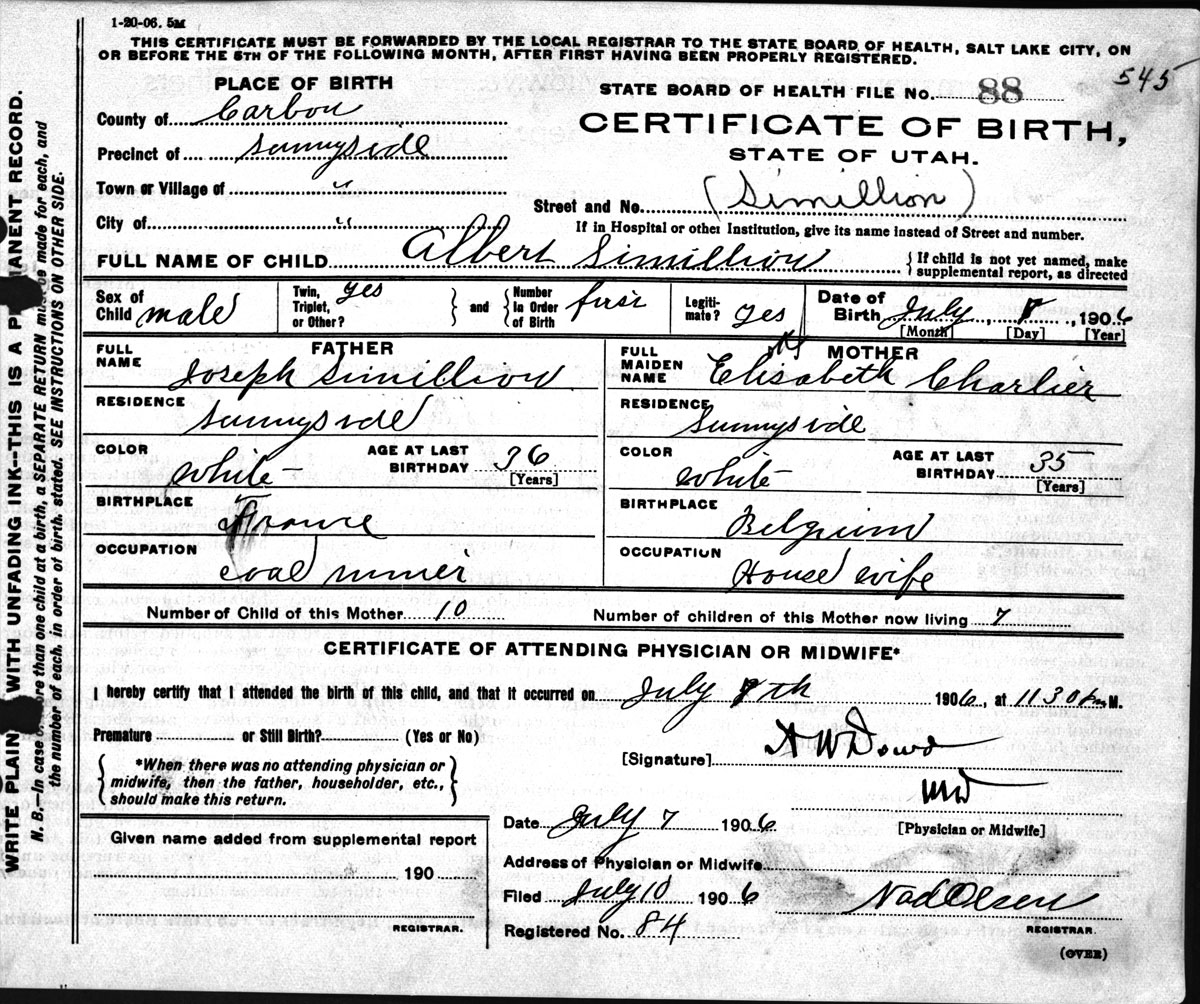 1-20-06. 5M
THIS CERTIFICATE MUST BE FORWARDED BY THE LOCAL REGISTRAR TO THE STATE BOARD OF HEALTH, SALT LAKE CITY, ON
OR BEFORE THE 5TH OF THE FOLLOWING MONTH, AFTER FIRST HAVING BEEN PROPERLY REGISTERED.
545
PLACE OF BIRTH
STATE BOARD OF HEALTH FILE No. 88
County of Carbon
CERTIFICATE OF BIRTH,
Precinct of Sunnyside
STATE OF UTAH.
Town or Village of "
Street and No. (Simillion)
City of "
If in Hospital or other Institution, give its name instead of Street and number.
FULL NAME OF CHILD Albert Simillion
{ If child is not yet named, make
supplemental report, as directed
Sex of Child male
Twin, Triplet, or Other? yes
and
Number In Order of Birth first
Legitimate? yes
Date of Birth July , , 1906
[Month] [Day] [Year]
FATHER
FULL NAME Joseph Simillion
RESIDENCE Sunnyside
COLOR White
AGE AT LAST BIRTHDAY 36
[Years]
BIRTHPLACE France
OCCUPATION coal miner
MOTHER
FULL MAIDEN NAME Elisabeth Charlier
RESIDENCE Sunnyside
COLOR White
AGE AT LAST BIRTHDAY 35
[Years]
BIRTHPLACE Belgium
OCCUPATION House wife
Number of Child of this Mother 10
Number of children of this Mother now living 7
CERTIFICATE OF ATTENDING PHYSICIAN OR MIDWIFE*
I hereby certify that I attended the birth of this child, and that it occurred on July th 1906, at 11 30 P M.
Premature or Still Birth? (Yes or No)
[Signature] A W Dowd
*When there was no attending physician or
midwife, then the father, householder, etc.,
should make this return.
MD
[Physician or Midwife]
Date July 7 1906
Given name added from supplemental report
Address of Physician or Midwife
, 190
Filed July 10 1906
Nad Olsen
REGISTRAR.
Registered No. 84
REGISTRAR.
(OVER)
WRITE PLAIN WITH UNFADING INK--THIS IS A P MANENT RECORD.
N. B.--In case of more than one child at a birth, a SEPARATE RETURN must be made for each, and
the number of each, in order of birth, stated. SEE INSTRUCTIONS ON OTHER SIDE.